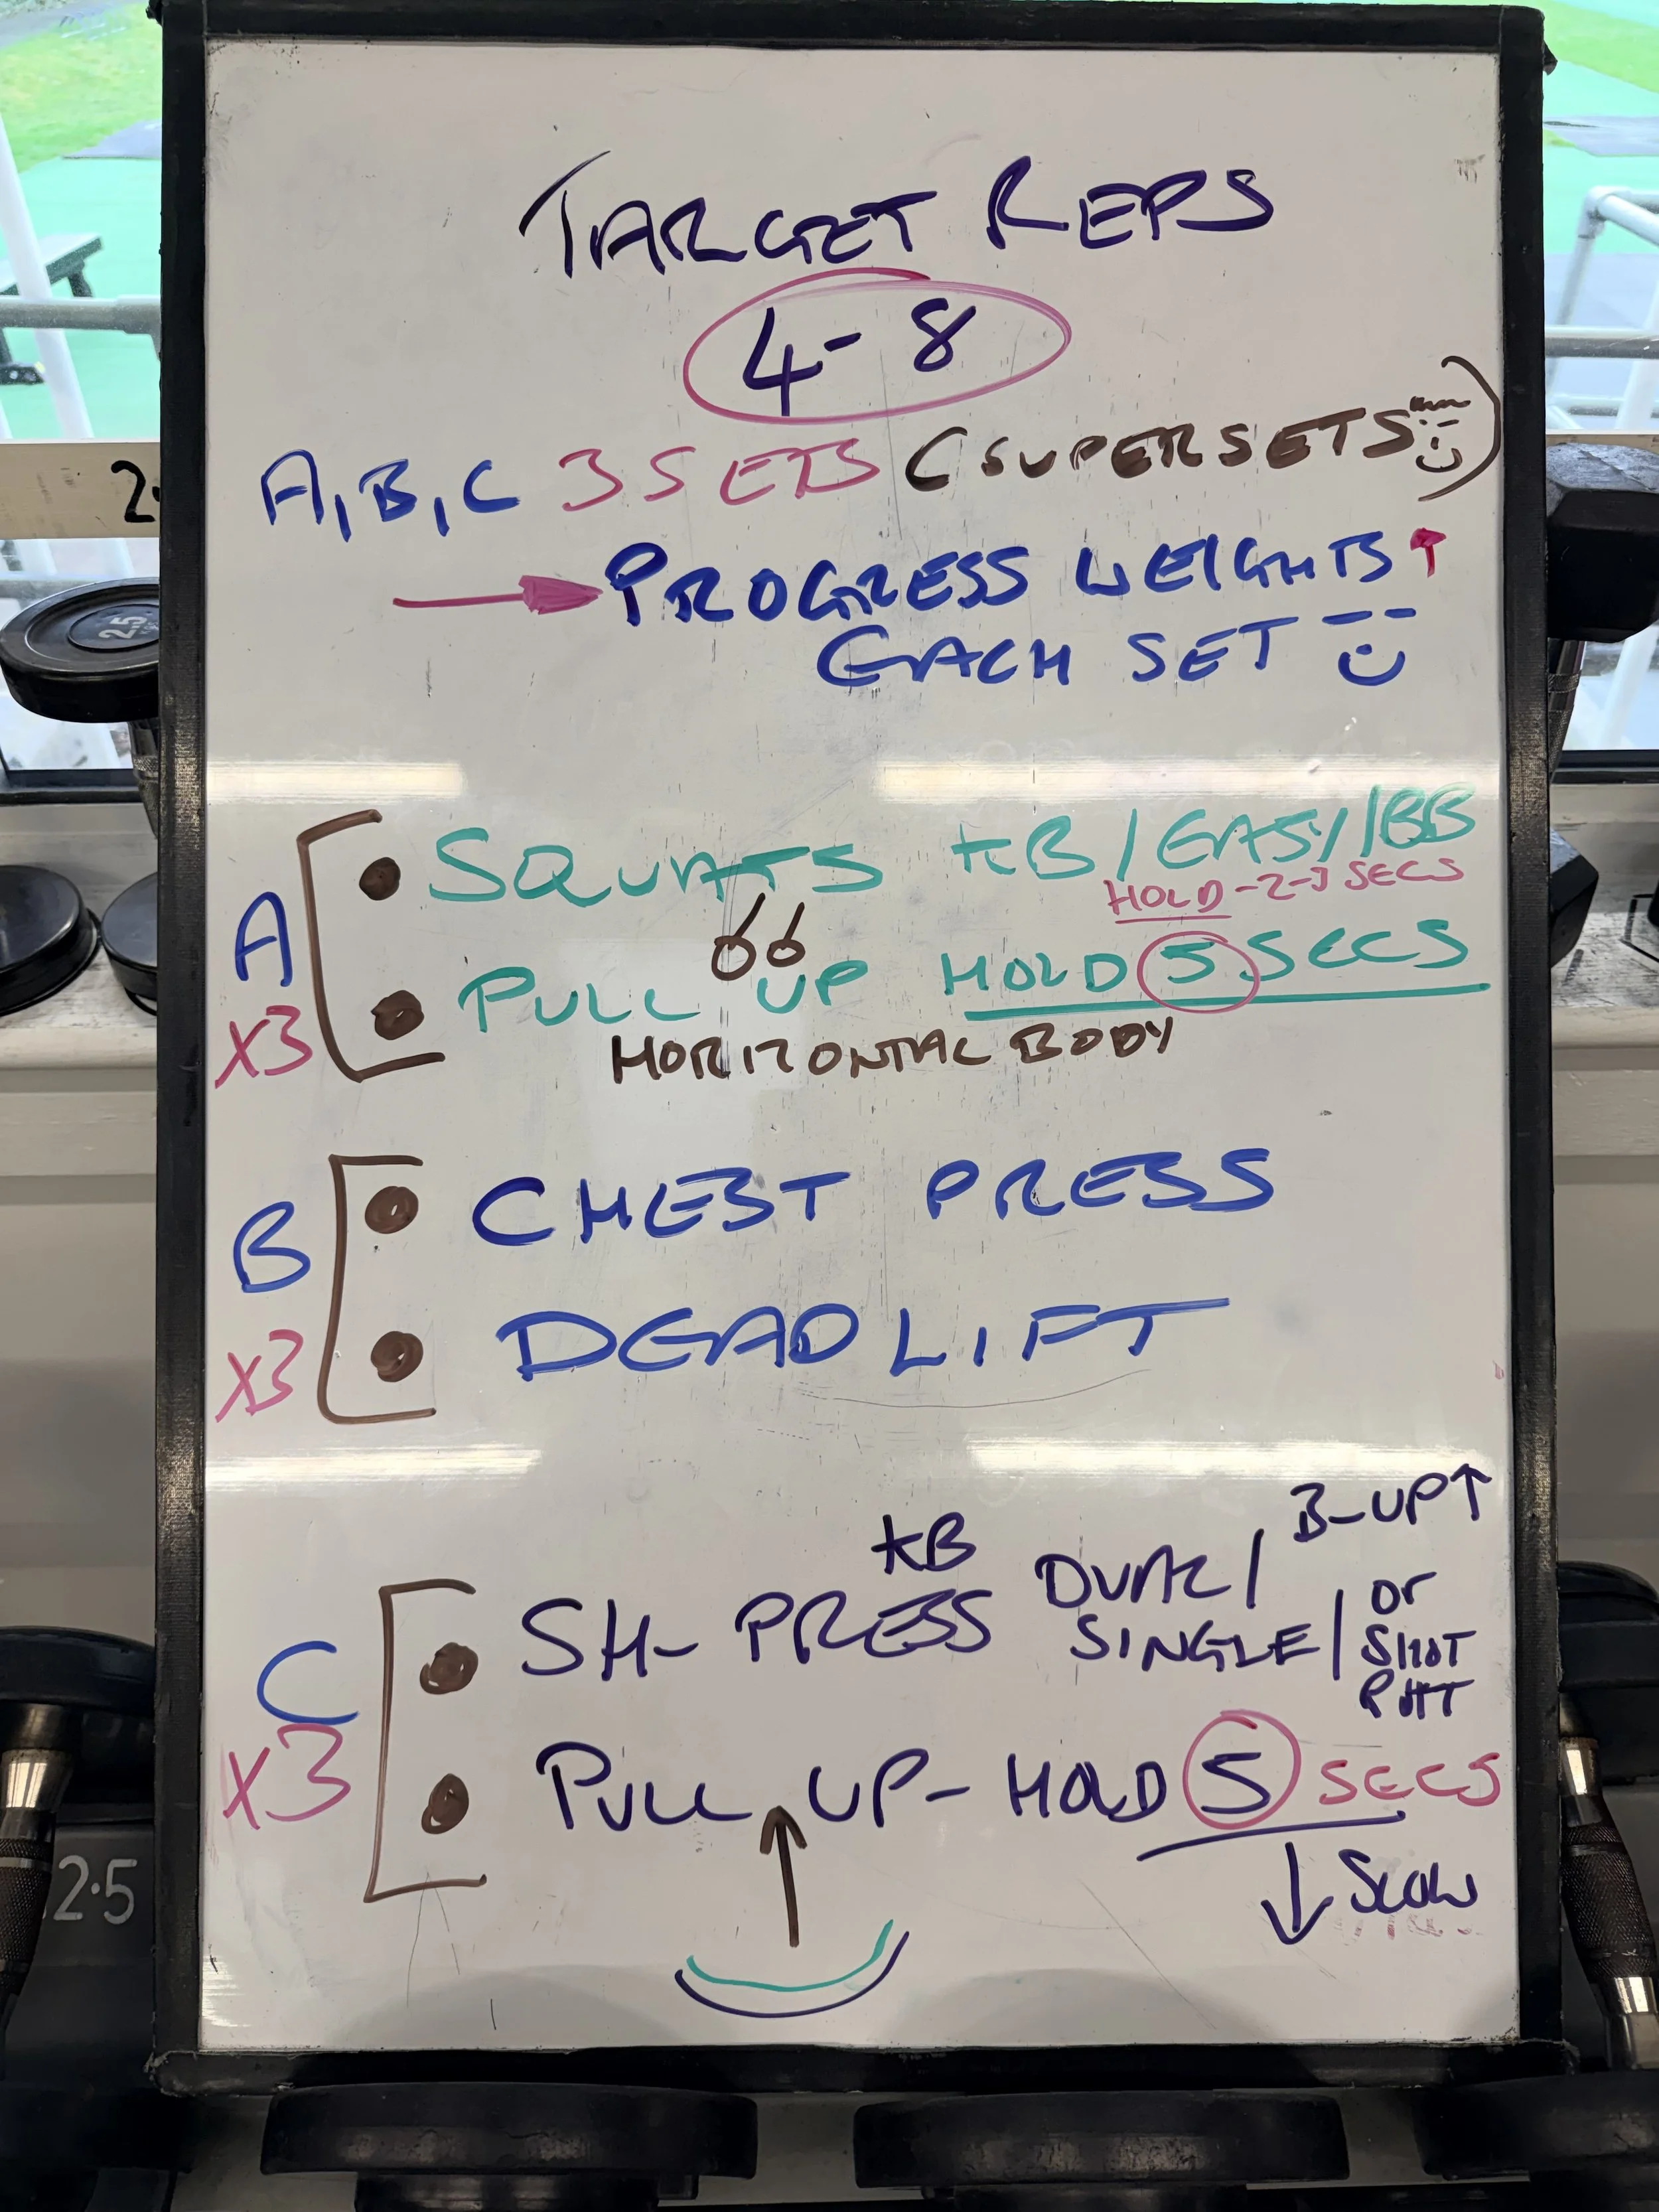 TARGET REPS
4-8
A, B, C 3 SETS (SUPERSETS)
PROGRESS WEIGHTS ↑
EACH SET
A
X3
SQUATS KB / EASY / BB
HOLD - 2-3 SECS
PULL UP HOLD 5 SECS
HORIZONTAL BODY
B
X3
CHEST PRESS
DEADLIFT
C
X3
SH- PRESS KB DUAL / SINGLE / B-UP↑ or SHOT PUT
PULL UP - HOLD 5 SECS
↓ SLOW
2.5
2.5